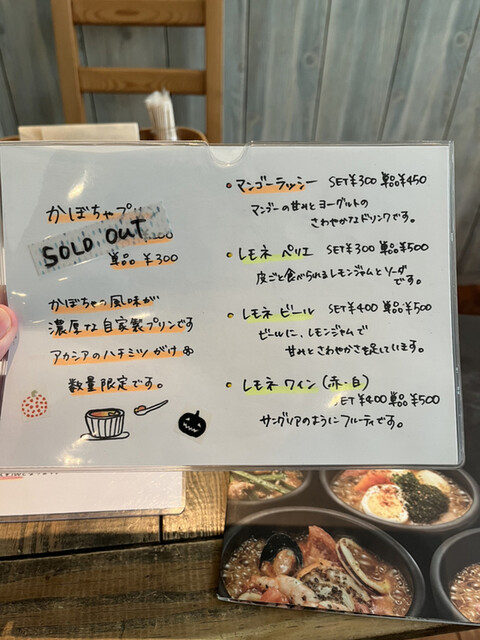 かぼちゃプ
SOLD OUT
単品 ¥300
かぼちゃの風味が
濃厚な自家製プリンです
アカシアのハチミツがけ
数量限定です。
• マンゴーラッシー SET¥300 単品¥450
マンゴーの甘みとヨーグルトの
さわやかなドリンクです。
• レモネ ペリエ SET¥300 単品¥500
皮ごと食べられるレモンジャムとソーダ
です。
• レモネ ビール SET¥400 単品¥500
ビールに、レモンジャムで
甘みとさわやかさを足しています。
• レモネ ワイン (赤・白)
SET¥400 単品¥500
サングリアのようにフルーティです。